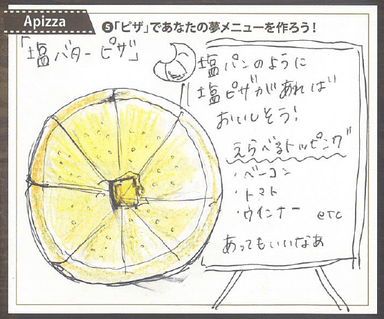 Apizza
❺「ピザ」であなたの夢メニューを作ろう!
「塩バターピザ」
塩パンのように
塩ピザがあれば
おいしそう!
えらべるトッピング
・ベーコン
・トマト
・ウインナー etc
あってもいいなあ